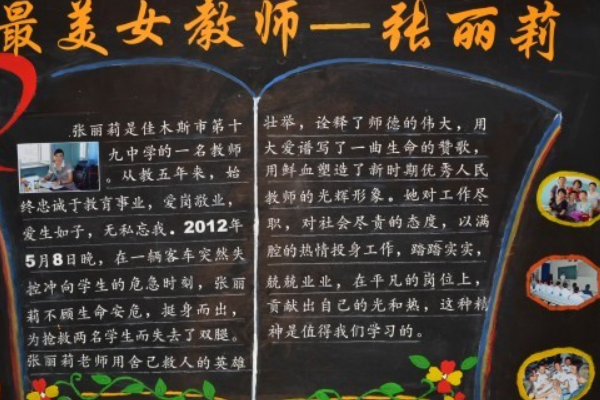 最美女教师—张丽莉
张丽莉是佳木斯市第十
九中学的一名教师
。从教五年来,始
终忠诚于教育事业,爱岗敬业,
爱生如子,无私忘我。2012年
5月8日晚,在一辆客车突然失
控冲向学生的危急时刻,张丽
莉不顾生命安危,挺身而出,
为抢救两名学生而失去了双腿。
张丽莉老师用舍己救人的英雄
壮举,诠释了师德的伟大,用
大爱谱写了一曲生命的赞歌,
用鲜血塑造了新时期优秀人民
教师的光辉形象。她对工作尽
职,对社会尽责的态度,以满
腔的热情投身工作,踏踏实实,
兢兢业业,在平凡的岗位上,
贡献出自己的光和热,这种精
神是值得我们学习的。